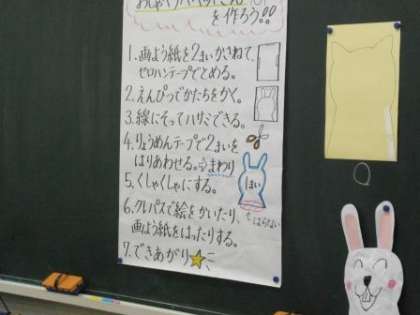 を作ろう!!
1. 画よう紙を2まいかさねて、
ゼロハンテープでとめる。
2. えんぴつでかたちをかく。
3. 線にそってハサミできる。
4. りょうめんテープで2まいを
はりあわせる。☆まわり
はい
5. くしゃくしゃにする。
6. クレパスで絵をかいたり、
画よう紙をはったりする。
7. できあがり